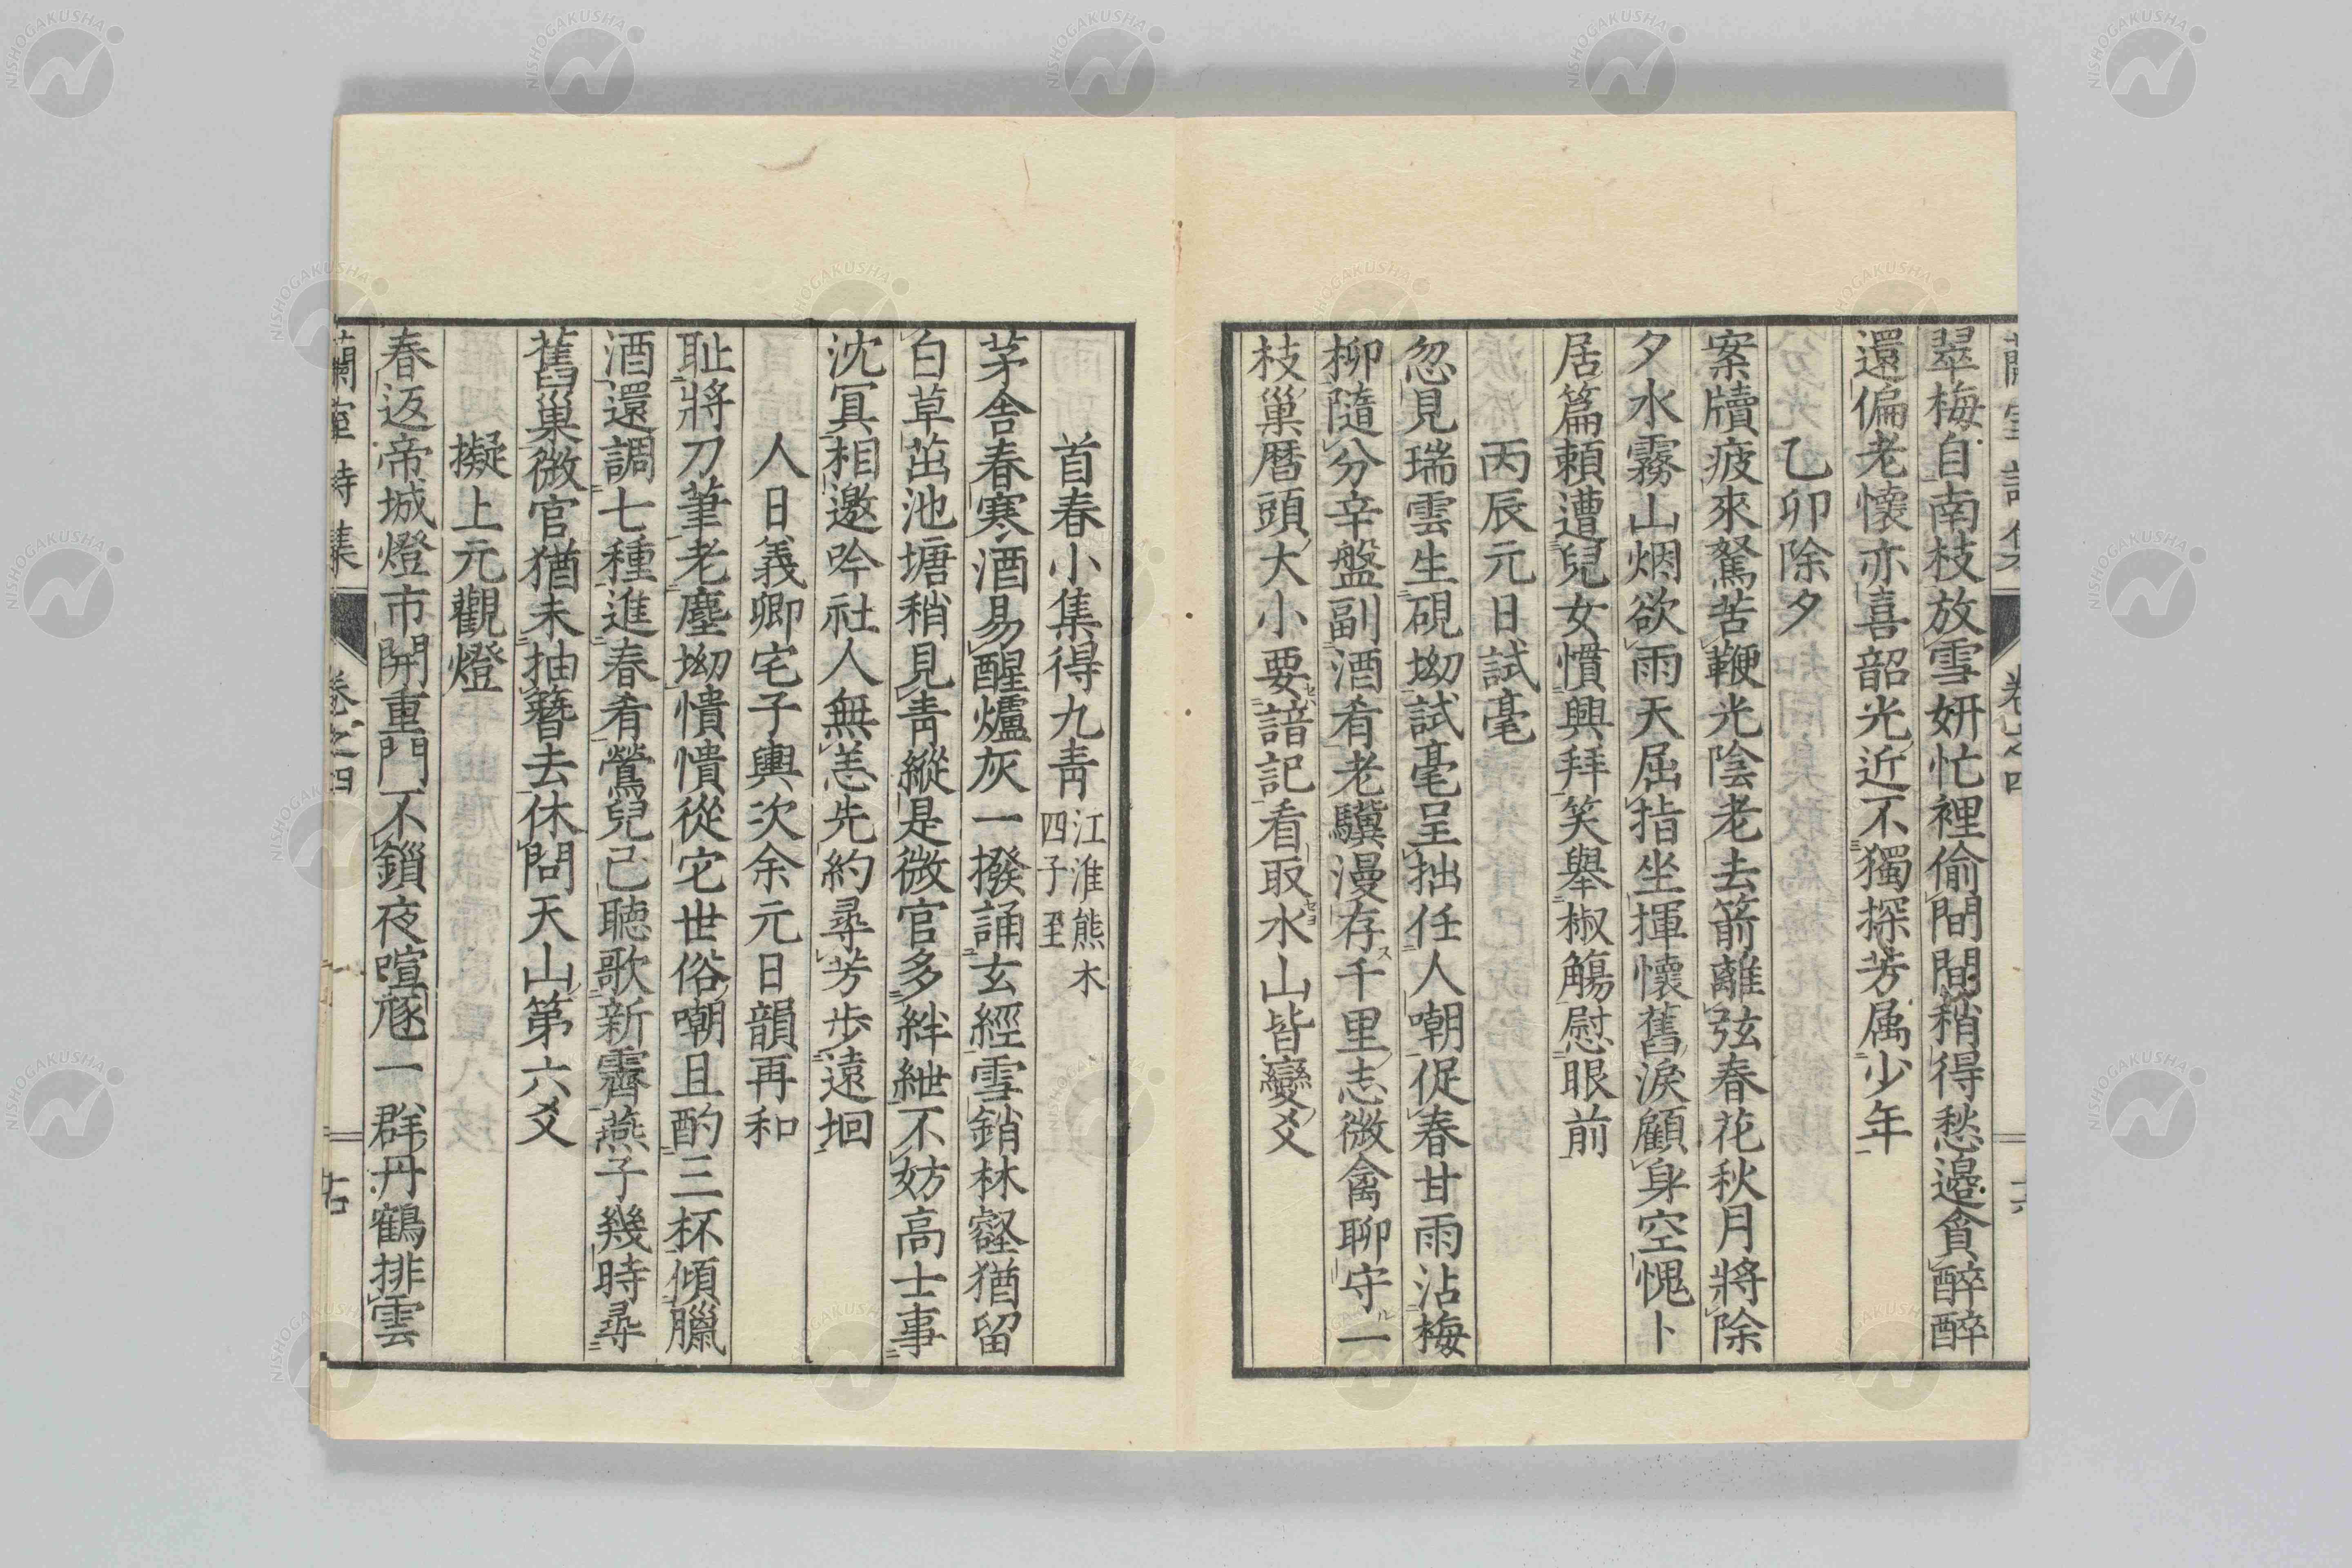 蘭室詩集 卷之四
翠梅自南枝放雪妍忙裡偷間間稍得愁邊貪醉醉
還偏老懷亦喜韶光近不獨探芳属少年
乙卯除夕
案牘疲來駑苦鞭光陰老去箭離弦春花秋月將除
夕水霧山烟欲雨天屈指坐揮懷舊淚顧身空愧卜
居篇頼遭兒女慣興拜笑舉椒觴慰眼前
丙辰元日試毫
忽見瑞雲生硯坳試毫呈拙任人嘲促春甘雨沾梅
柳隨分辛盤副酒肴老驥漫存千里志微禽聊守一
枝巢暦頭大小要諳記看取水山皆變爻
首春小集得九青 江淮熊木
四子至
茅舍春寒酒易醒爐灰一撥誦玄經雪銷林壑猶留
白草茁池塘稍見青縱是微官多絆紲不妨高士事
沈冥相邀吟社人無恙先約尋芳步遠坰
人日義卿宅子輿次余元日韻再和
耻將刀筆老塵坳憒憒從它世俗嘲且酌三杯傾臘
酒還調七種進春肴鶯兒已聽歌新霽燕子幾時尋
舊巢微官猶未抽簪去休問天山第六爻
擬上元觀燈
春返帝城燈市開重門不鎖夜喧豗一群丹鶴排雲
蘭室詩集 卷之四